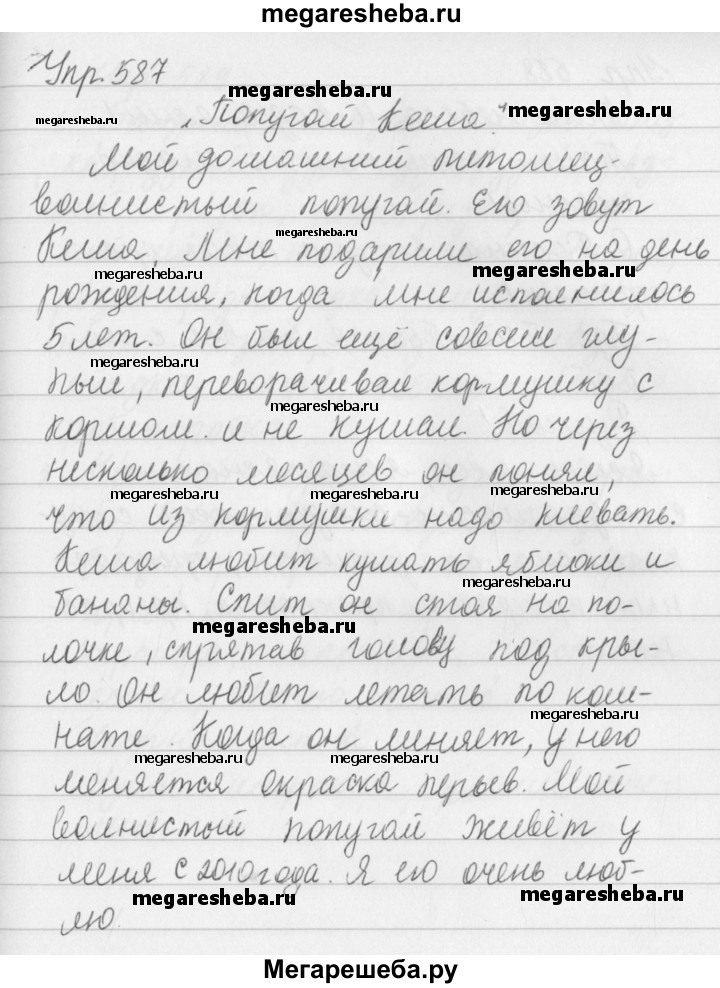 megaresheba.ru
Упр. 587
megaresheba.ru
megaresheba.ru
„Попугай Кеша."
megaresheba.ru
Мой домашний питомец-
волнистый попугай. Его зовут
megaresheba.ru
Кеша. Мне подарили его на день
megaresheba.ru
megaresheba.ru
рождения, когда мне исполнилось
5 лет. Он был ещё совсем глу-
megaresheba.ru
пым, переворачивал кормушку с
megaresheba.ru
кормом. и не кушал. Но через
несколько месяцев он понял,
megaresheba.ru megaresheba.ru megaresheba.ru
что из кормушки надо клевать.
Кеша любит кушать яблоки и
megaresheba.ru
бананы. Спит он стоя на по-
megaresheba.ru
лочке, спрятав голову под кры-
ло. Он любит летать по ком-
megaresheba.ru
нате. Когда он линяет, у него
megaresheba.ru megaresheba.ru
меняется окраска перьев. Мой
волнистый попугай живёт у
меня с 2010 года. Я его очень люб-
megaresheba.ru megaresheba.ru
лю.
Мегарешеба.ру